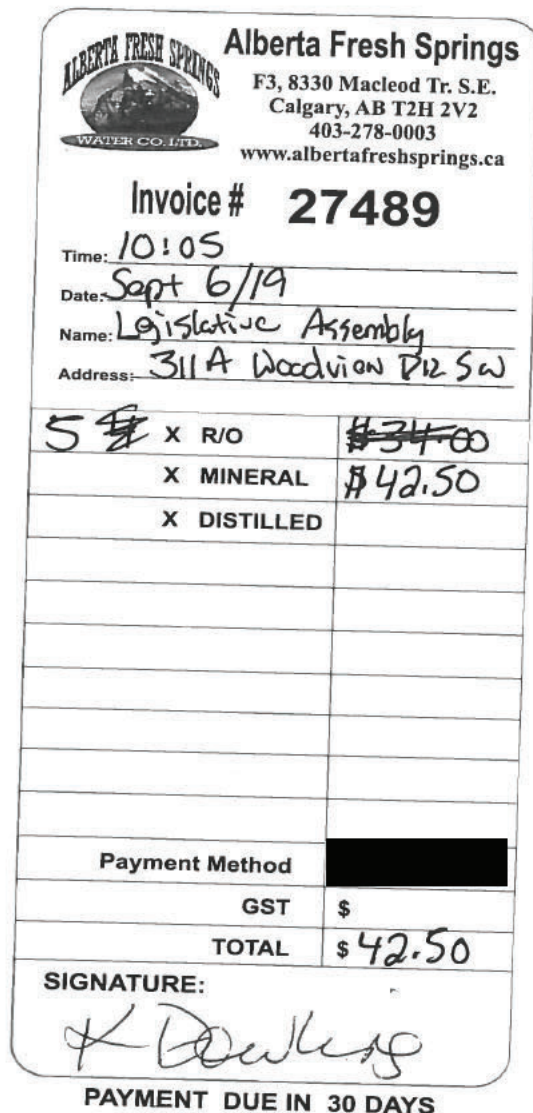 ALBERTA FRESH SPRINGS
WATER CO. LTD.
Alberta Fresh Springs
F3, 8330 Macleod Tr. S.E.
Calgary, AB T2H 2V2
403-278-0003
www.albertafreshsprings.ca
Invoice # 27489
Time: 10:05
Date: Sept 6/19
Name: Legislative Assembly
Address: 311A Woodview Dr SW
5 X R/O $34.00
X MINERAL $42.50
X DISTILLED
Payment Method
GST $
TOTAL $ 42.50
SIGNATURE:
PAYMENT DUE IN 30 DAYS